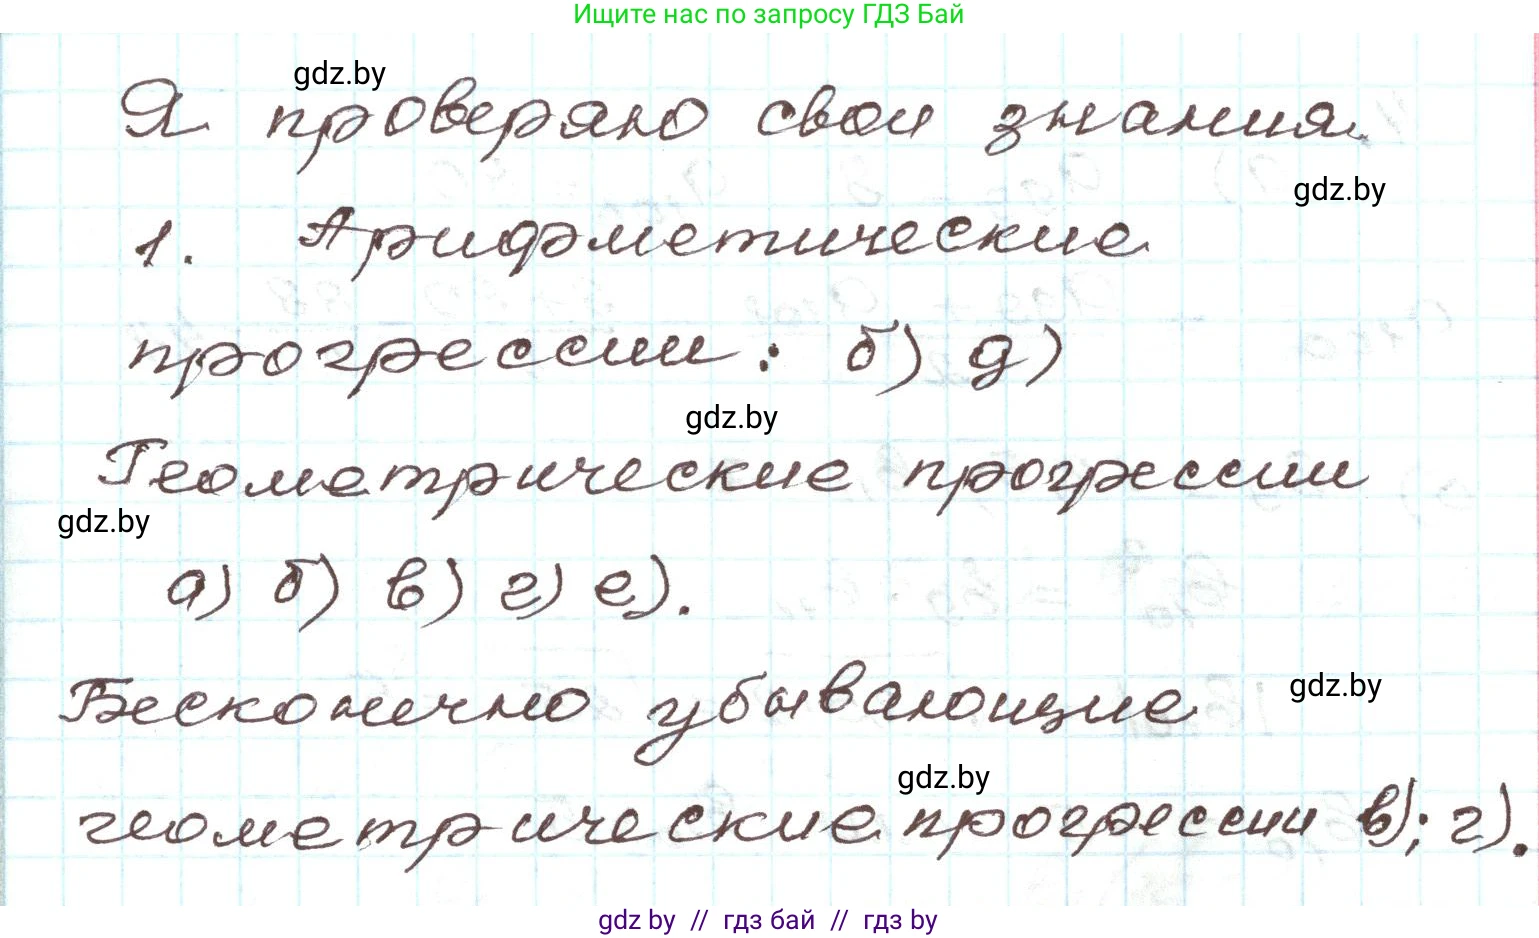 Ищите нас по запросу ГДЗ Бай
gdz.by
Я проверяю свои знания.
gdz.by
1. Арифметические
прогрессии: б) д)
gdz.by
Геометрические прогрессии
gdz.by
а) б) в) г) е).
gdz.by
Бесконечно убывающие
gdz.by
геометрические прогрессии в); г).
gdz by // гдз бай // гдз by